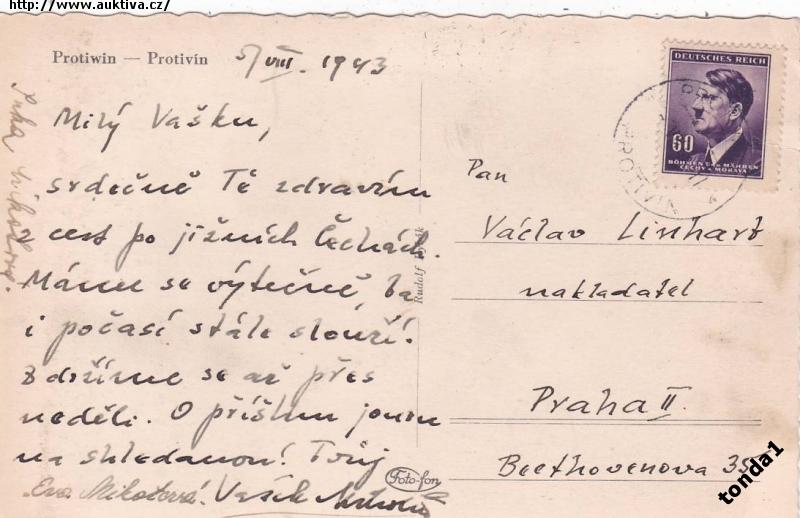 http://www.auktiva.cz/
Protiwin — Protivín
5/VIII. 1943
Milý Vašku,
srdečně Tě zdravím
z cest po jižních Čechách.
Máme se výtečně, ba
i počasí stále slouží!
Zdržíme se až přes
neděli. O příštím
na shledanou! Tvůj
Vašík
Eva Mikotová.
Rudolf
Foto-fon
DEUTSCHES REICH
60
BÖHMEN u. MÄHREN
ČECHY a MORAVA
PROTIVIN
Pan
Václav Linhart
nakladatel
Praha II.
Beethovenova 35
tonda1